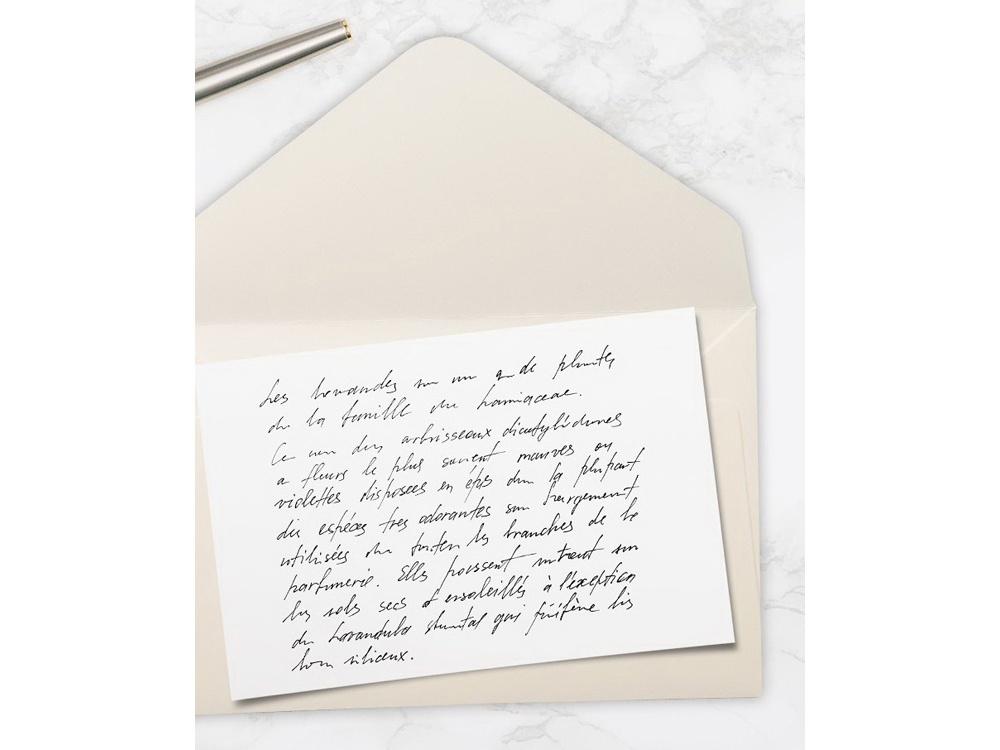 Les lavandes un de plantes
de la famille du Lamiaceae.
Ce arbrisseaux dicotylédones
a fleurs le plus souvent mauves ou
violettes disposées en épis la plupart
des espèces tres odorantes largement
utilisées les branches de la
parfumerie. Elles poussent surtout sur
les sols secs et ensoleillés à l'exception
du Lavandula qui préfère les
siliceux.